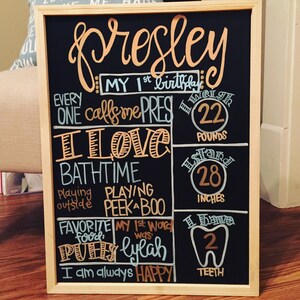 presley
MY 1st birthday
EVERY
ONE calls me PRES
I LOVE
BATHTIME
playing
outside
PLAYING
PEEK-A-BOO
FAVORITE
food:
PUFFS
MY 1st WORD
was:
lylah
I am always HAPPY
I weigh
22
POUNDS
I stand
28
INCHES
I have
2
TEETH